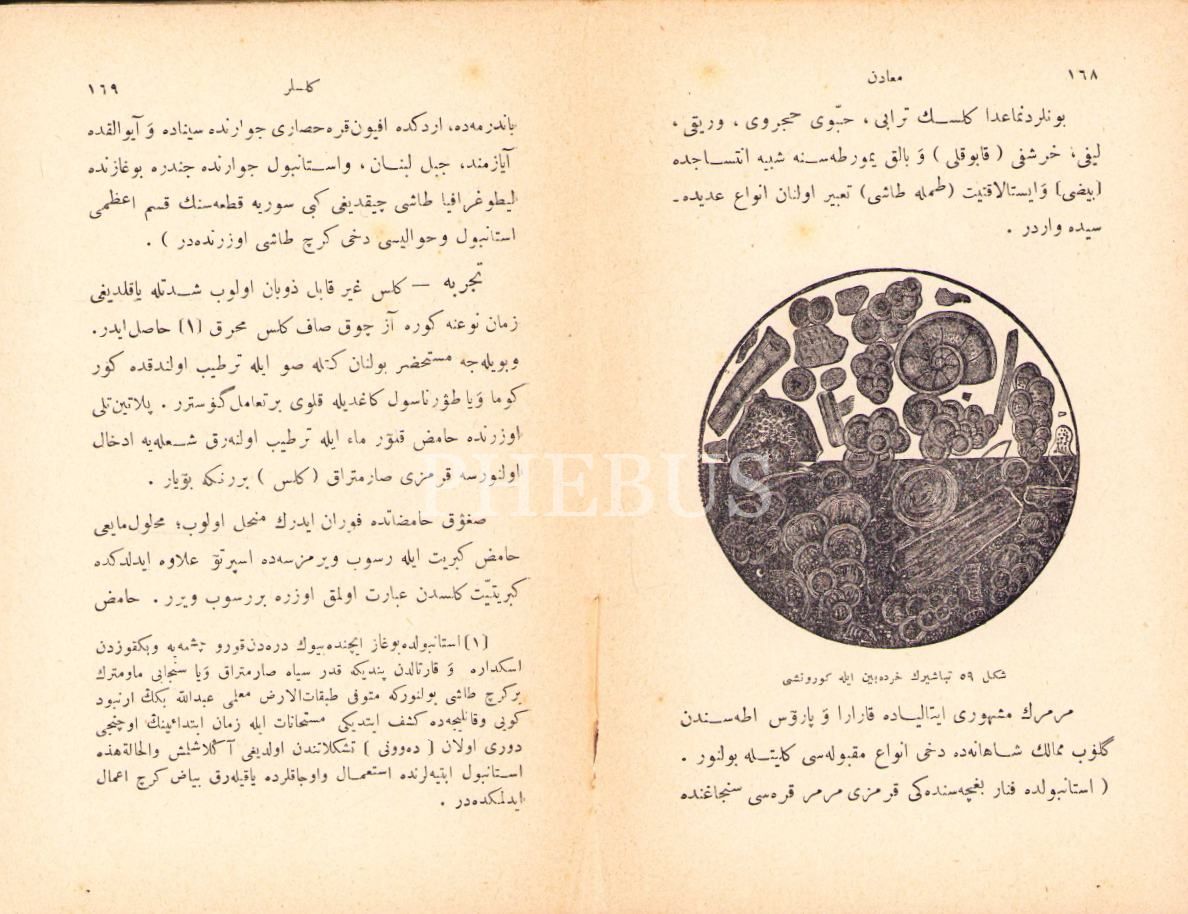 ١٦٨
معادن
بونلردنماعدا كلسـك ترابى ، حبّوى حجروى ، وريقى ،
ليفى، خرشفى ( قابوقلى ) وَ بالق يمورطه‌سـنه شبيه انتسـاجده
[بيضى] وَايستالاقتيت (طمله طاشى) تعبير اولنان انواع عديده‌ـ
سيده واردر .
شكل ٥٩ تباشيرك خرده‌بين ايله كورونشى
مرمرك مشهورى ايتاليـاده قارارا وَ پارۆس اطه‌سـندن
گلۆب ممالك شـاهانه‌ده دخى انواع مقبوله‌سى كليتـله بولنور .
( استانبولده فنار بغچه‌سنده‌كى قرمزى مرمر قره‌سى سنجاغنده
١٦٩
كلسلر
باندرمه‌ده، اردكده افيون‌قره‌حصارى جوارنده سيناده وَ آيوالقده
آيازمند، جبل لبنـان ، واسـتانبول جوارنده جندره بوغازنده
ليطوغرافيا طاشى چيقديغى كبى سوريه قطعه‌سنك قسم اعظمى
استانبول وحواليسى دخى كرچ طاشى اوزرنده‌در ) .
تجربه — كلس غير قابل ذوبان اولوب شـدتله ياقلديغى
زمان نوعنه كوره آز چوق صاف كلس محرق [١] حاصل‌ايدر.
وبويله‌جه مستحضر بولنان كتله صو ايله ترطيب اولندقده كور
كوما وَيا طۆرناسول كاغديله قلوى برتعامل گۆسترر . پلاتين‌تلى
اوزرنده حامض قلۆر ماء ايله ترطيب اولنه‌رق شـعله‌يه ادخال
اولنورسه قرمزى صارمتراق ( كلس ) بررنكه بۆيار .
صغۆق حامضاتده فوران ايدرك منحل اولوب؛ محلول‌مايعى
حامض كبريت ايله رسوب ويرمزسه‌ده اسپرتۆ علاوه ايدلدكده
كبريتيّت كلسدن عبارت اولمق اوزره بررسوب ويرر . حامض
[١] استانبولده‌بوغاز ايچنده‌بيوك دره‌دن‌قورو چشمه‌يه وبكقوزدن
اسكداره وَ قارتالدن پنديكه قدر سياه صارمتراق وَيا سنجابى ماومترك
بركرچ طاشى بولنوركه متوفى طبقات‌الارض معلمى عبدالله بكك ارنبود
كوبى وقانليجه‌ده كشف ايتديكى مستحاثات ايله زمان ابتدائينك اوچنجى
دورى اولان ( ده‌وونى ) تشكلاتندن اولديغى آ كلاشلمش والحالةهذه
اسـتانبول ابنيه‌لرنده استعمـال واوجاقلرده ياقيله‌رق بياض كرچ اعمال
ايدلمكده‌در .
PHEBUS